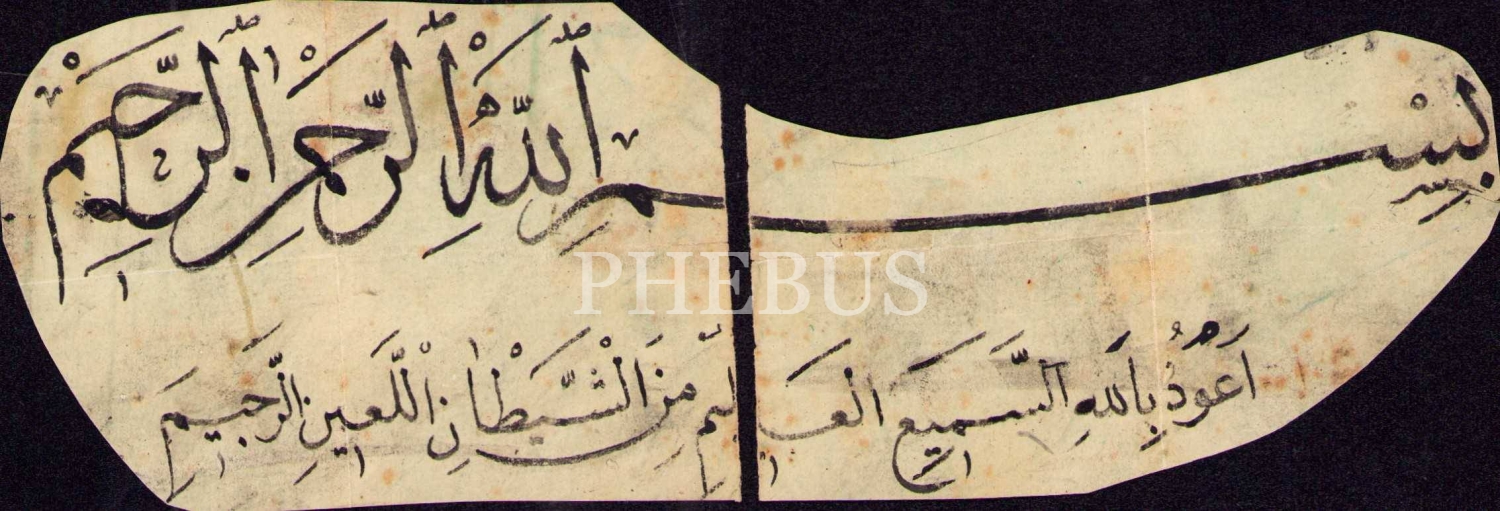 بِسْمِ اللّٰهِ الرَّحْمٰنِ الرَّحِيمِ
PHEBUS
اَعُوذُ بِاللهِ السَّمِيعِ الْعَلِيمِ مِنَ الْشَّيْطَانِ اللَّعِينِ الرَّجِيمِ